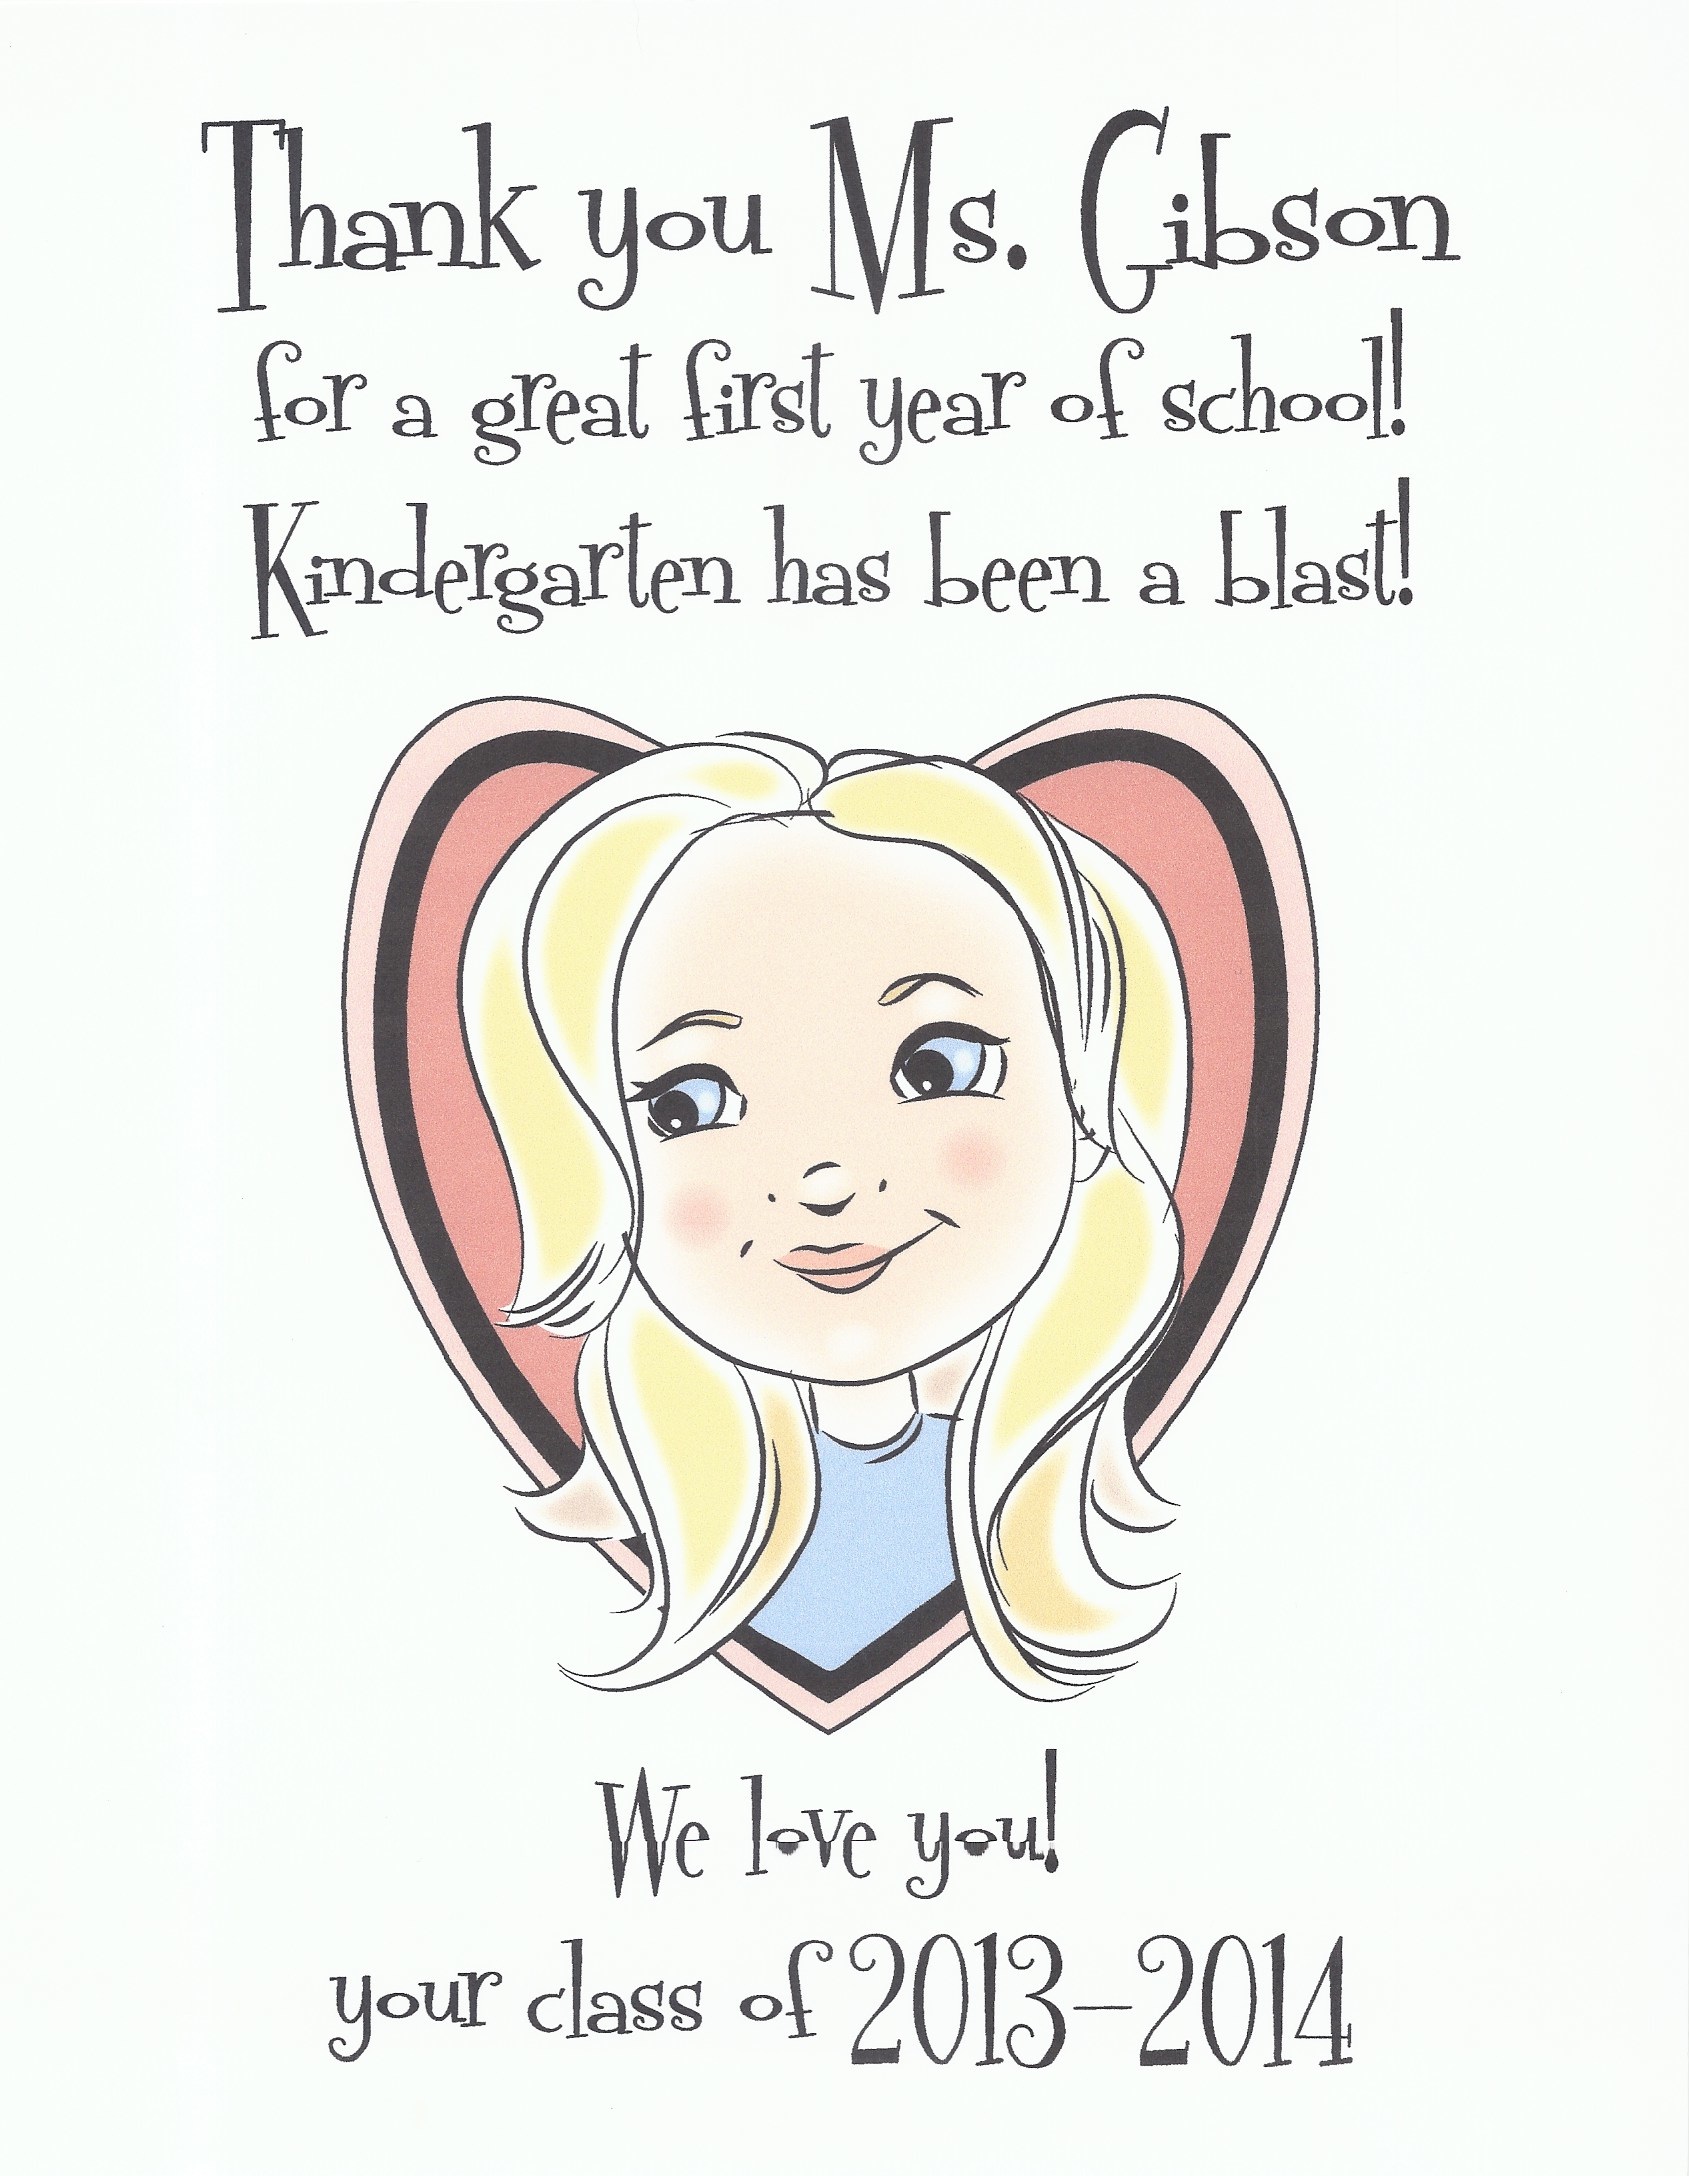 Thank you Ms. Gibson
for a great first year of school!
Kindergarten has been a blast!
We love you!
your class of 2013-2014